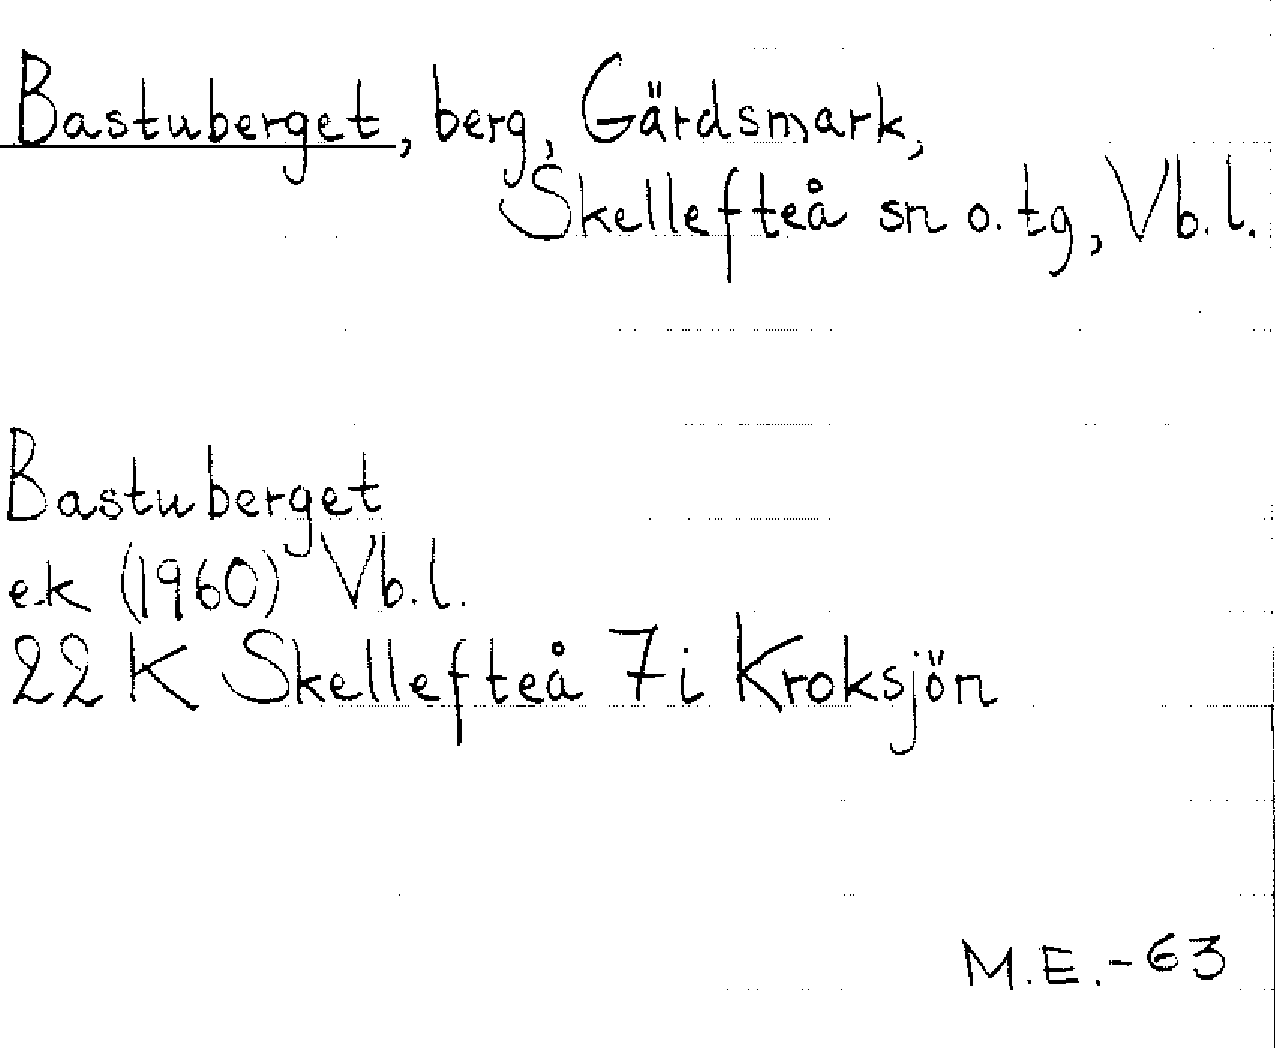 Bastuberget, berg, Gärdsmark,
Skellefteå sn o. tg, Vb. l.
Bastuberget
ek (1960) Vb. l.
22 K Skellefteå 7i Kroksjön
M.E.-63